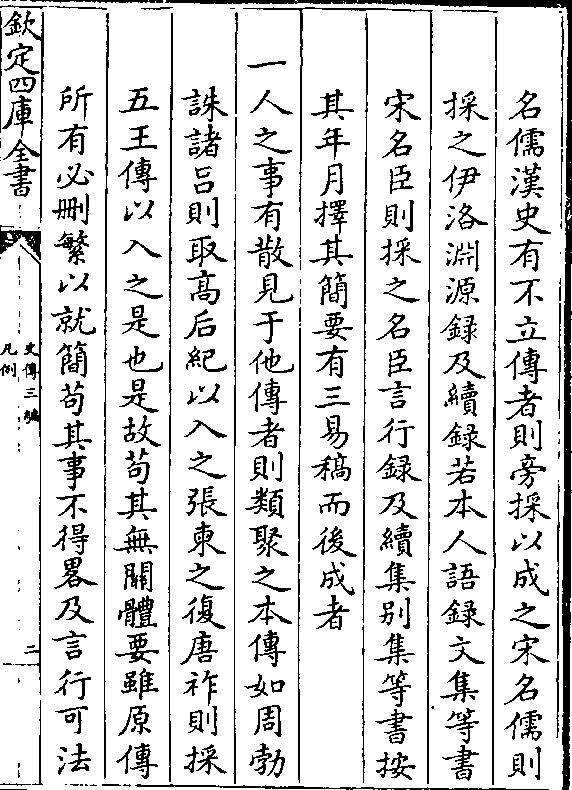 名儒漢史有不立傳者則旁採以成之宋名儒則
採之伊洛淵源録及續録若本人語録文集等書
宋名臣則採之名臣言行録及續集别集等書按
其年月擇其簡要有三易稿而後成者
一人之事有散見于他傳者則類聚之本傳如周勃
誅諸吕則取髙后紀以入之張柬之復唐祚則採
五王傳以入之是也是故苟其無關體要雖原傳
所有必刪繁以就簡苟其事不得畧及言行可法
欽定四庫全書
史傳三編
凡例
二